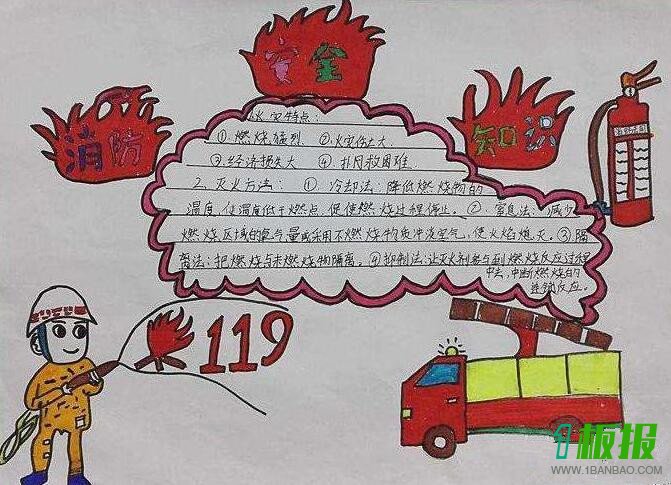 安全
消防
知识
火灾特点：
①燃烧猛烈 ②火灾伤亡大
③经济损失大 ④扑风救困难
2、灭火方法：①、冷却法：降低燃烧物的
温度，使温度低于燃点，促使燃烧过程停止。②、窒息法：减少
燃烧区域的氧气量或采用不燃烧物质冲淡空气，使火焰熄灭。③隔
离法：把燃烧与未燃烧物隔离。④抑制法：让灭火剂参与到燃烧反应过程
中去，中断燃烧的
连锁反应。
119
板报
WWW.1BANBAO.COM